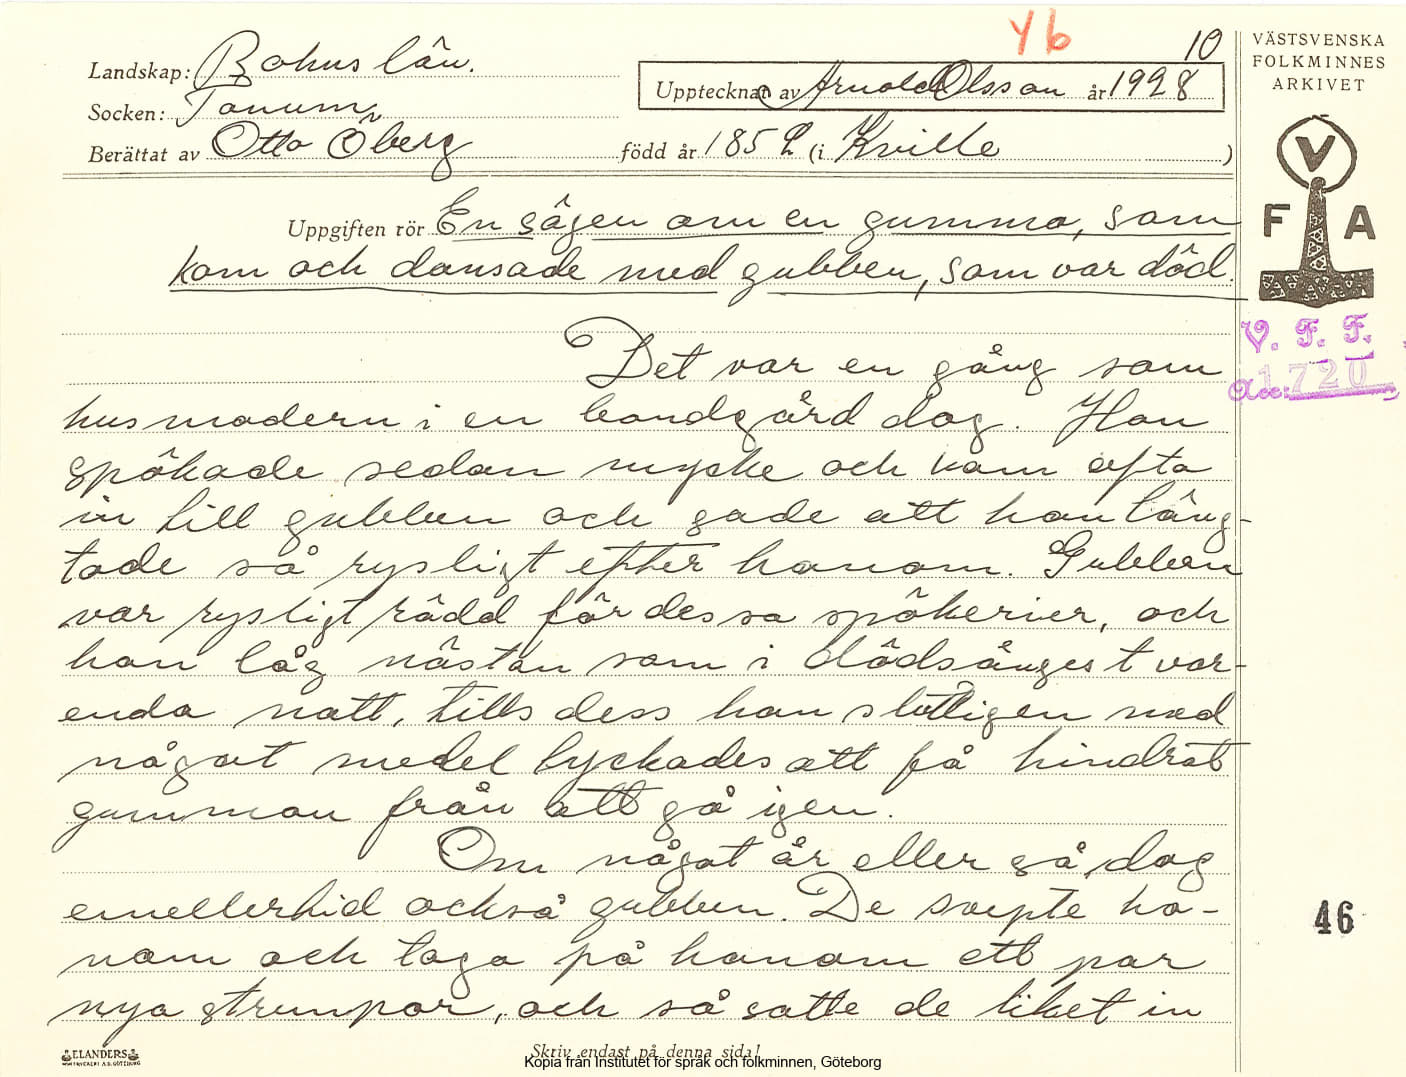 Yb
10
Landskap: Bohus län.
Upptecknat av Arnold Olsson år 1928
Socken: Tanum
Berättat av Otto Öberg född år 185 (i Kville )
Uppgiften rör En sägen om en gumma, som
kom och dansade med gubben, som var död.
VÄSTSVENSKA
FOLKMINNES
ARKIVET
V
F A
V. F. F.
Acc: 1720
Det var en gång som
husmodern i en bondgård dog. Hon
spökade sedan mycke och kom ofta
in till gubben och sade att hon läng-
tade så rysligt efter honom. Gubben
var rysligt rädd för dessa spökerier, och
han låg nästan som i dödsångest var-
enda natt, tills dess han slutligen med
något medel lyckades att få hindrat
gumman från att gå igen.
Om något år eller så, dog
emellertid också gubben. De svepte ho-
nom och toga på honom ett par
nya strumpor, och så satte de liket in
46
ELANDERS
Skriv endast på denna sida!
Kopia från Institutet för språk och folkminnen, Göteborg